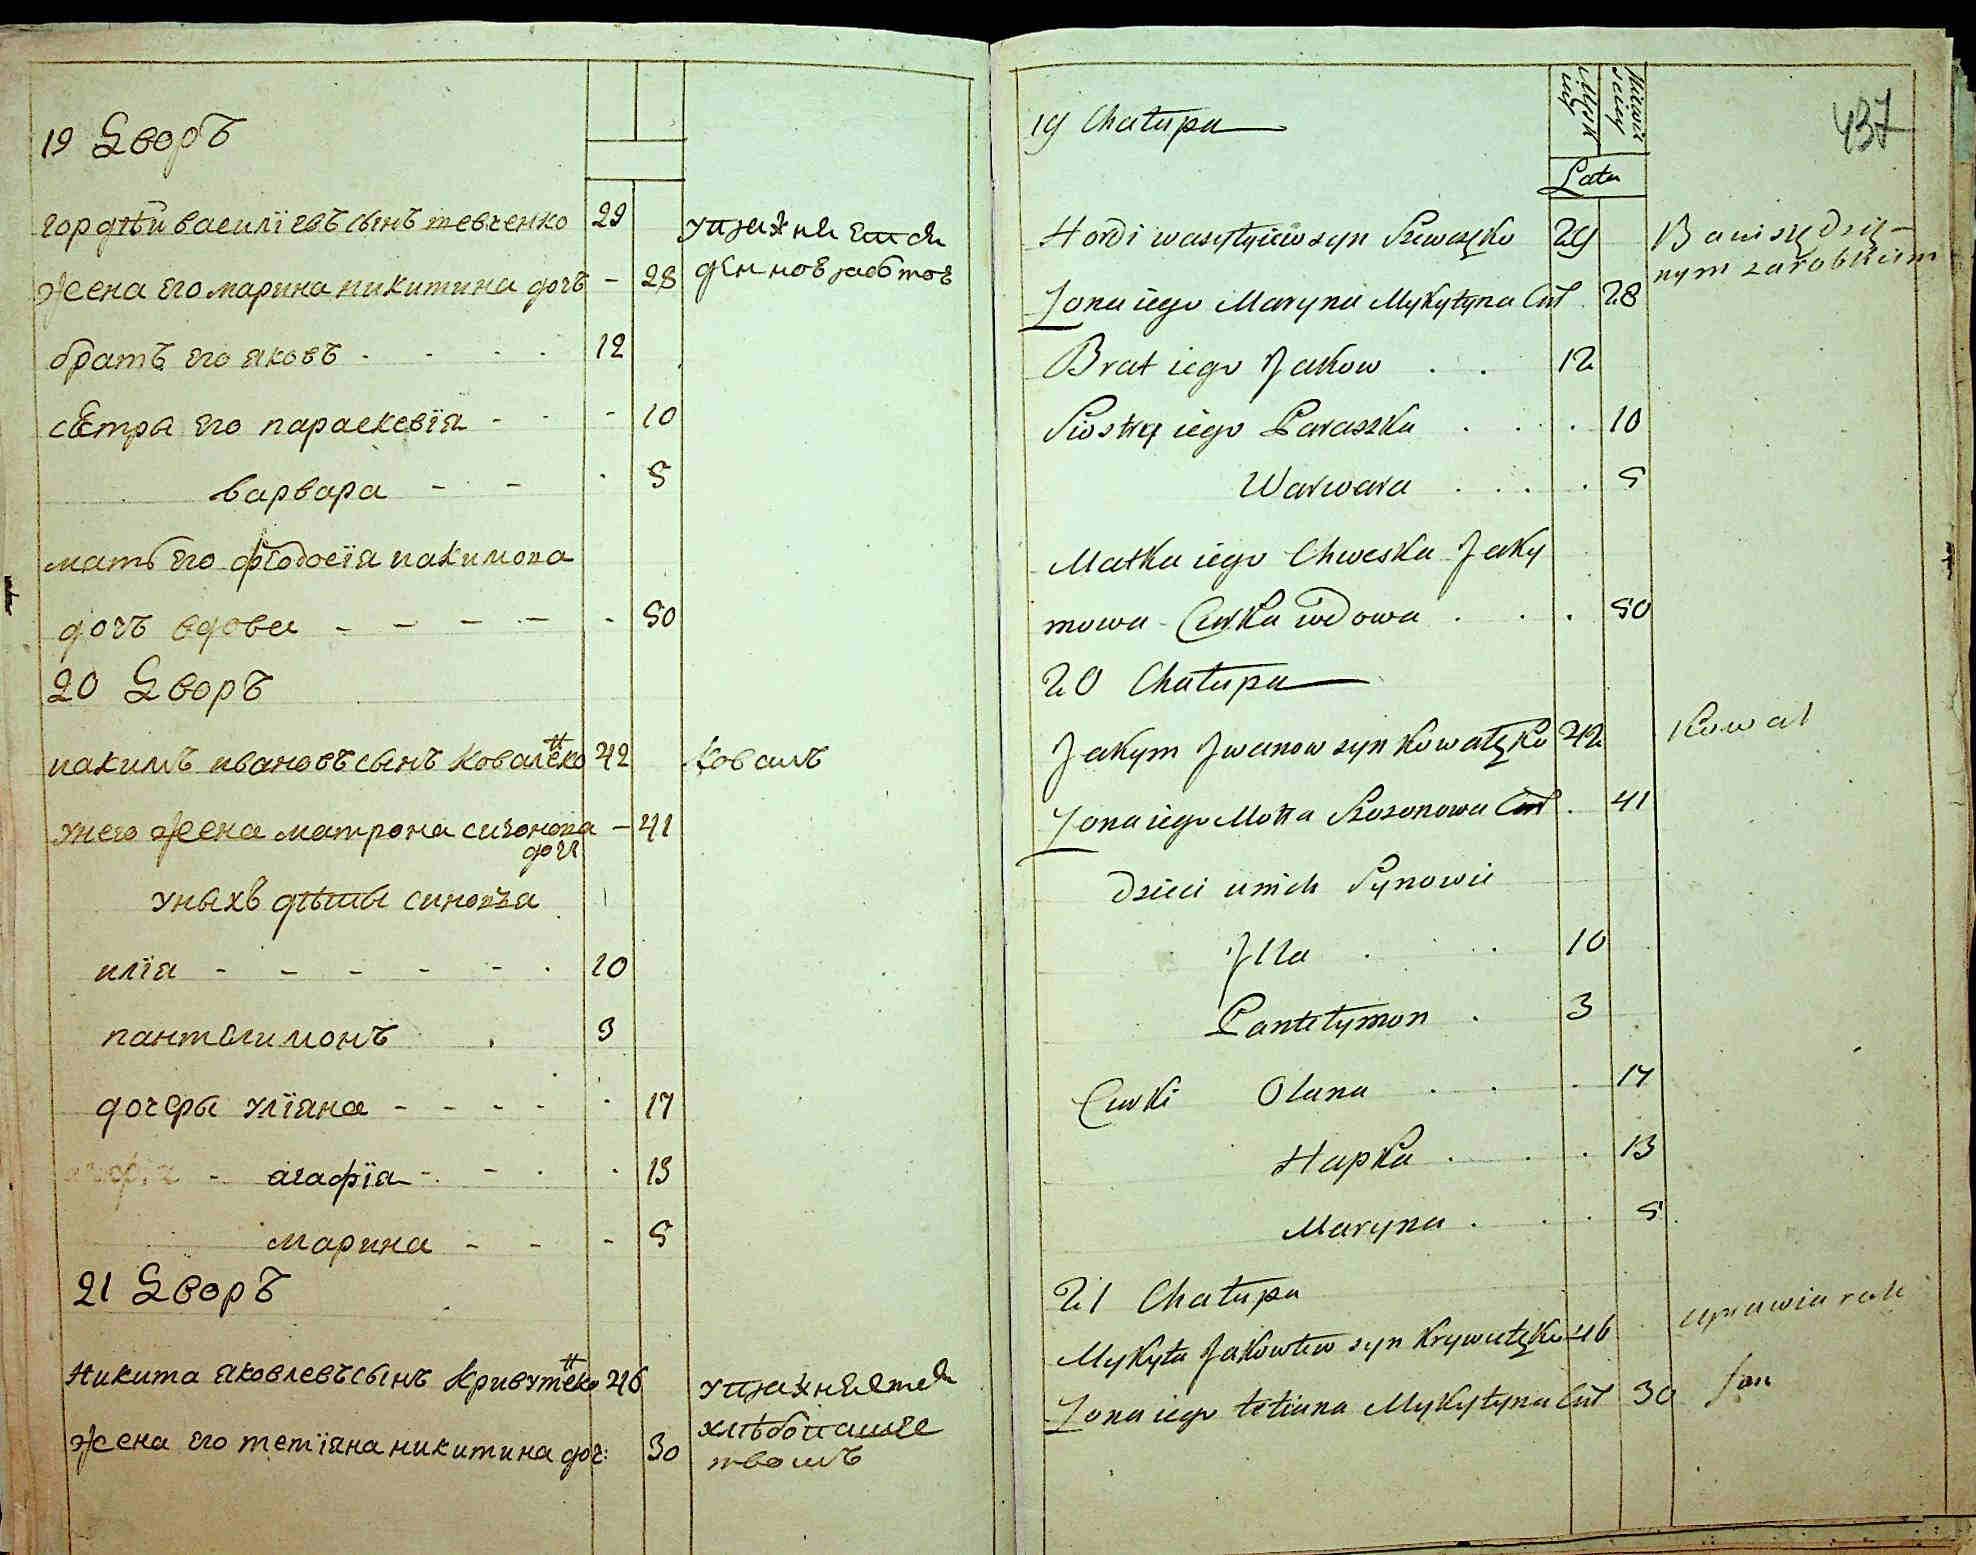 19 Дворъ
гордѣй василїевъ сынъ шевченко 29
упражняется
жена его марина никитина дочъ - 28
денною работою
братъ его яковъ 12
сестра его параскевїя - 10
варвара - 5
мать его феодосїя иакимова
дочъ вдова - 50
20 Дворъ
иакимъ ивановъ сынъ коваленко 42
Ковалъ
у него жена матрона сизонова - 41
дочъ
у ныхъ дѣты синовъя
илїя 10
пантелимонъ 3
дочеры улїяна - 17
агафїя - 13
марина - 5
21 Дворъ
Никита яковлевъ сынъ кривутенко 46
упражняется
жена его тетїяна никитина доч: 30
хлѣбопаше
твомъ
437
19 Chałupa
Męsk
Lata
Hordi wasylyiw syn Szewczęko 29
Bawi się dzię-
nym zarobkiem
Żona iego Maryna Mykytyna Cur 28
Brat iego Jakow 12
Siostry iego Paraszka 10
Warwara 5
Matka iego Chweska Jaky
mowa Curka wdowa 50
20 Chałupa
Jakym Jwanow syn Kowalęko 42
Kowal
Żona iego Motra Sozonowa Cur 41
Dzieci u nich Synowie
Jlla 10
Pantełymon 3
Curki Olana 17
Hapka 13
Maryna 5
21 Chałupa
Mykyta Jakowlew syn Krywutęko 46
uprawia rolę
Żona iego tetiana Mykytyna Cur 30